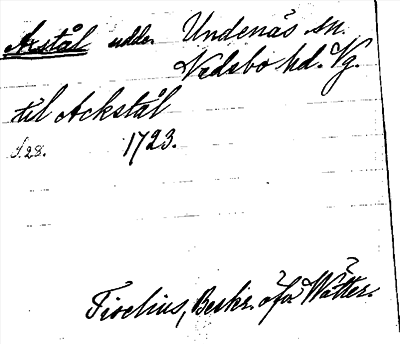 Axstål udde Undenäs sn.
Vadsbo hd. Vg.
til Ackstål
S. 28. 1723.
Tiselius, Beskr. öfr Wätter.